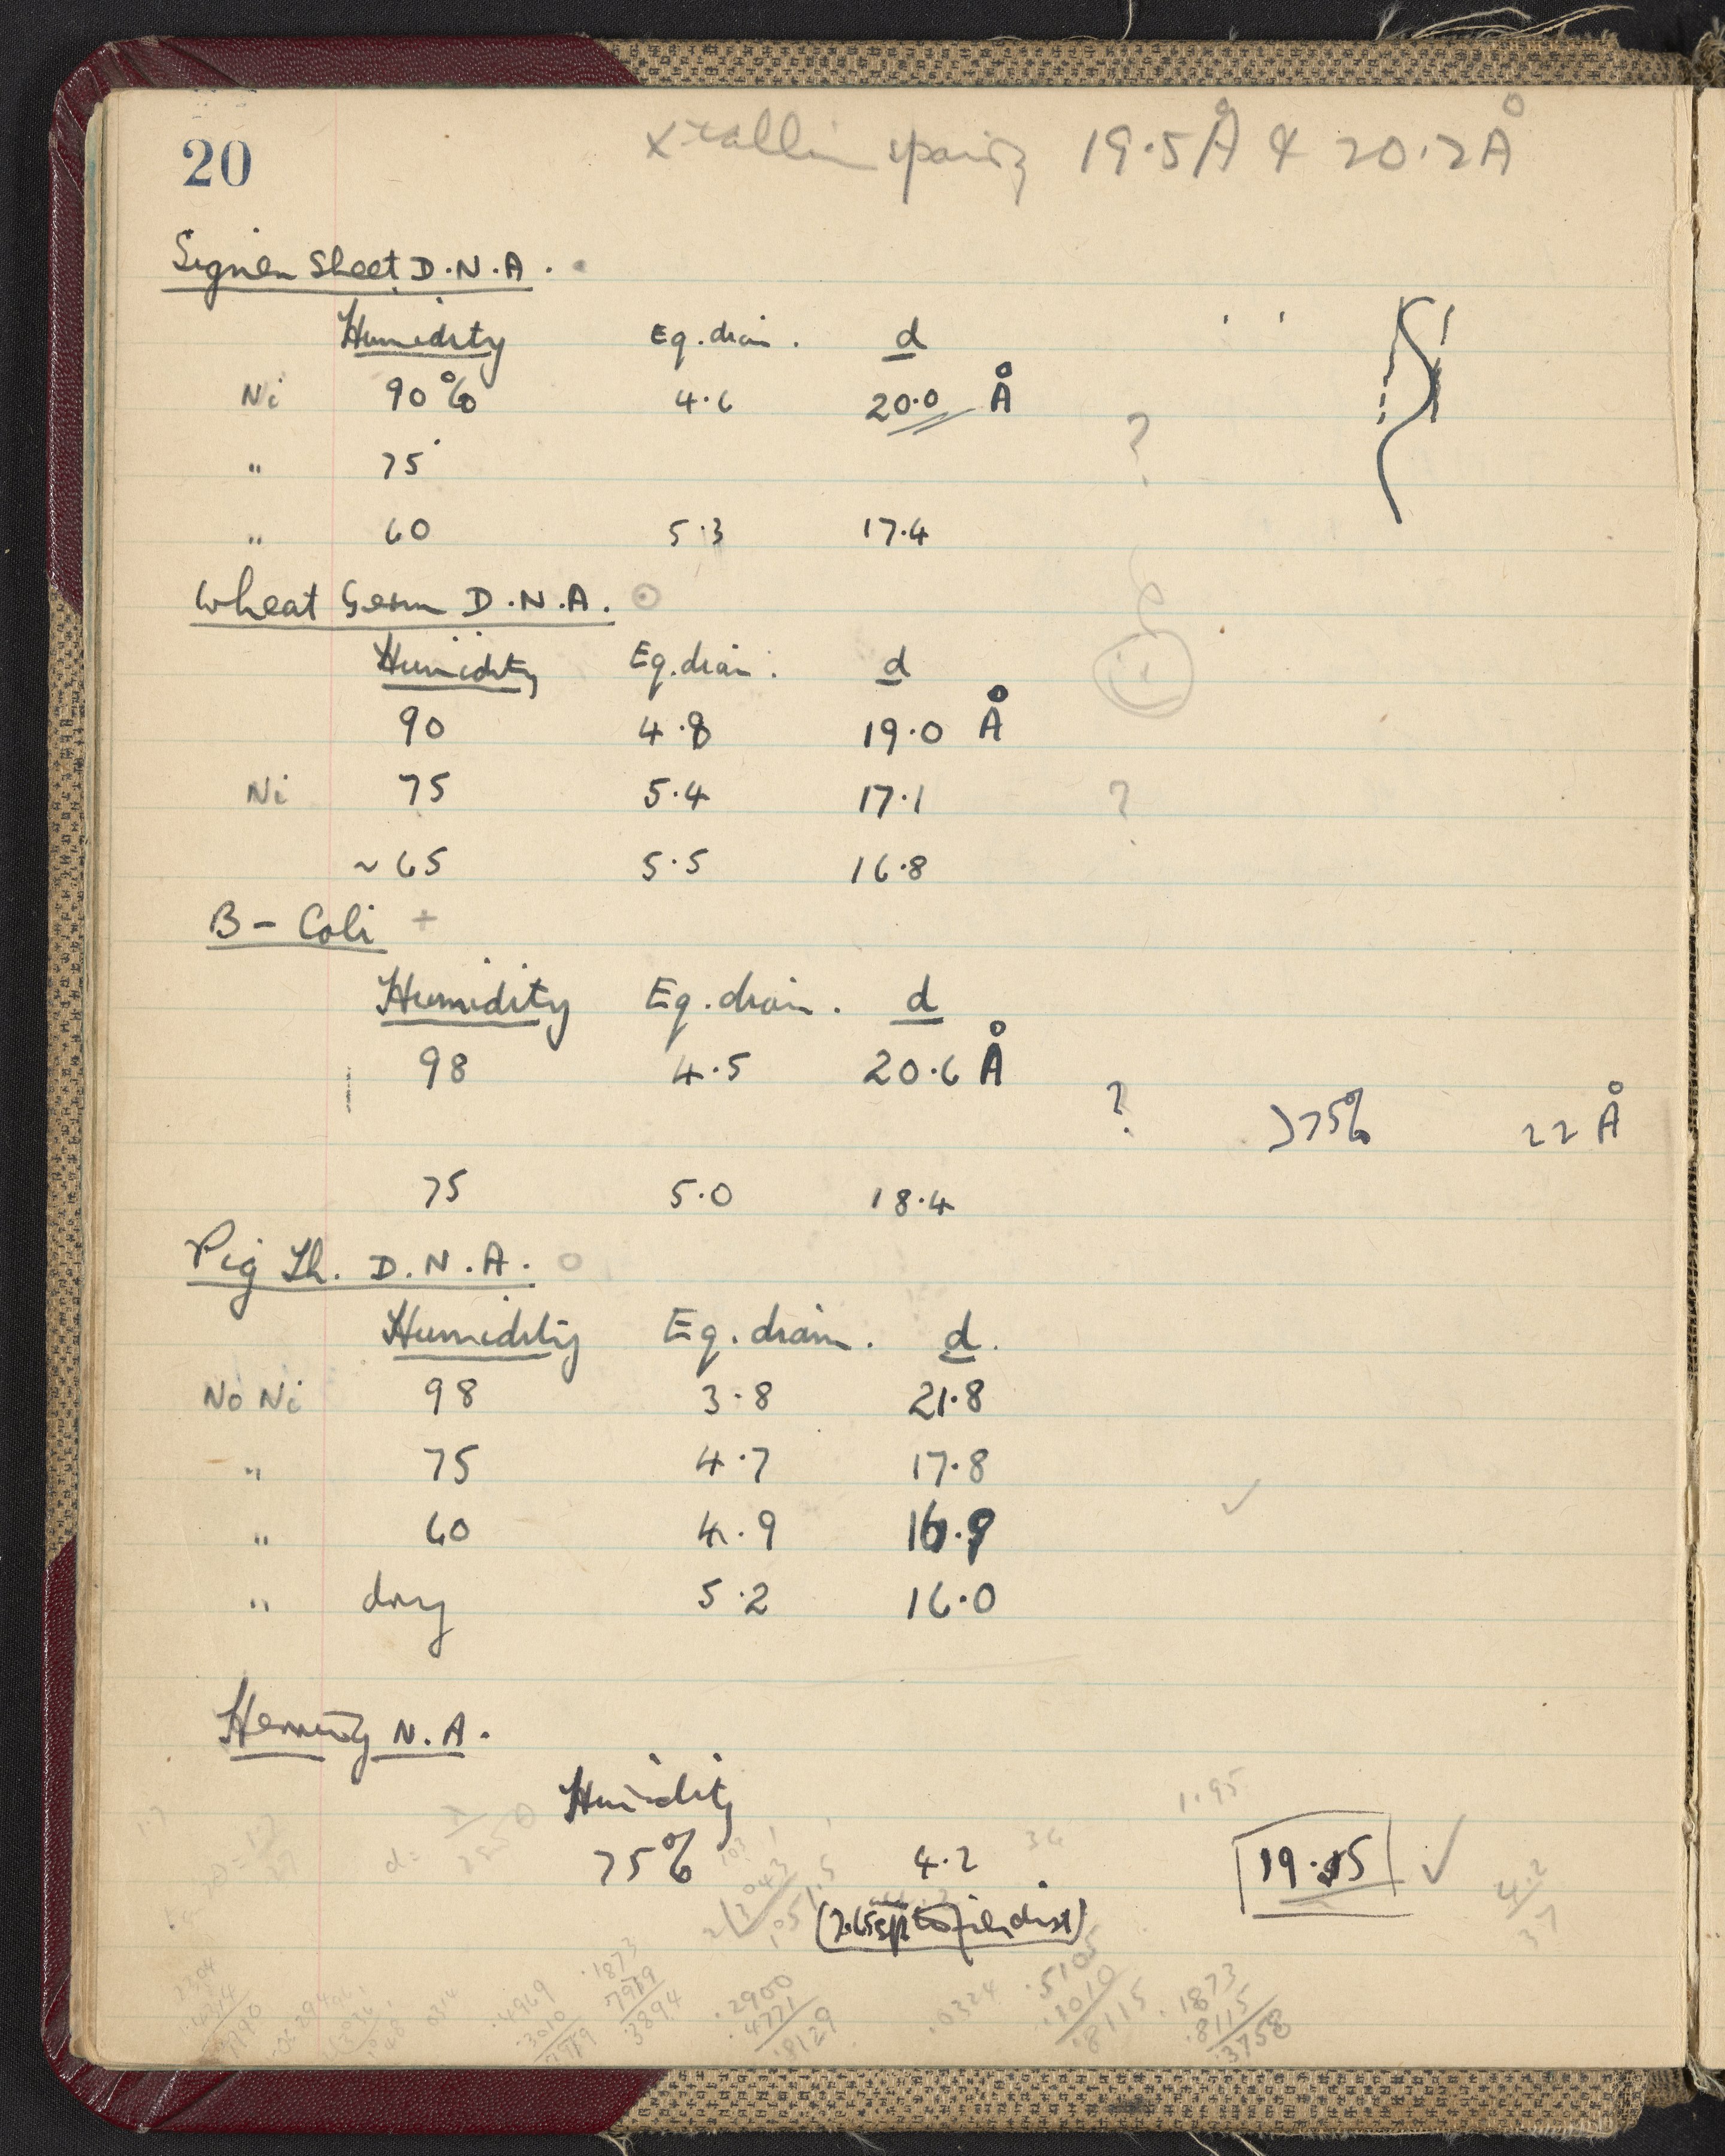 20
xtalline spacing 19.5Å & 20.2Å
Signer Sheet D.N.A.
Humidity Eq. diam. d
Ni 90% 4.6 20.0 Å
" 75 ?
" 60 5.3 17.4
Wheat Germ D.N.A.
Humidity Eq. diam. d
90 4.8 19.0 Å
Ni 75 5.4 17.1 ?
~65 5.5 16.8
B - Coli +
Humidity Eq. diam. d
98 4.5 20.6 Å
? >75% 22 Å
75 5.0 18.4
Pig Th. D.N.A.
Humidity Eq. diam. d.
No Ni 98 3.8 21.8
" 75 4.7 17.8
" 60 4.9 16.9
" dry 5.2 16.0
Herring N.A.
Humidity
1.95
75% 4.2 19.5
34
4.2
37
.4969
.3010
.7979
.1873
.7979
.3894
.2900
.4771
.8129
.0324
.5105
.3010
.8115
.1873
.8115
.3758